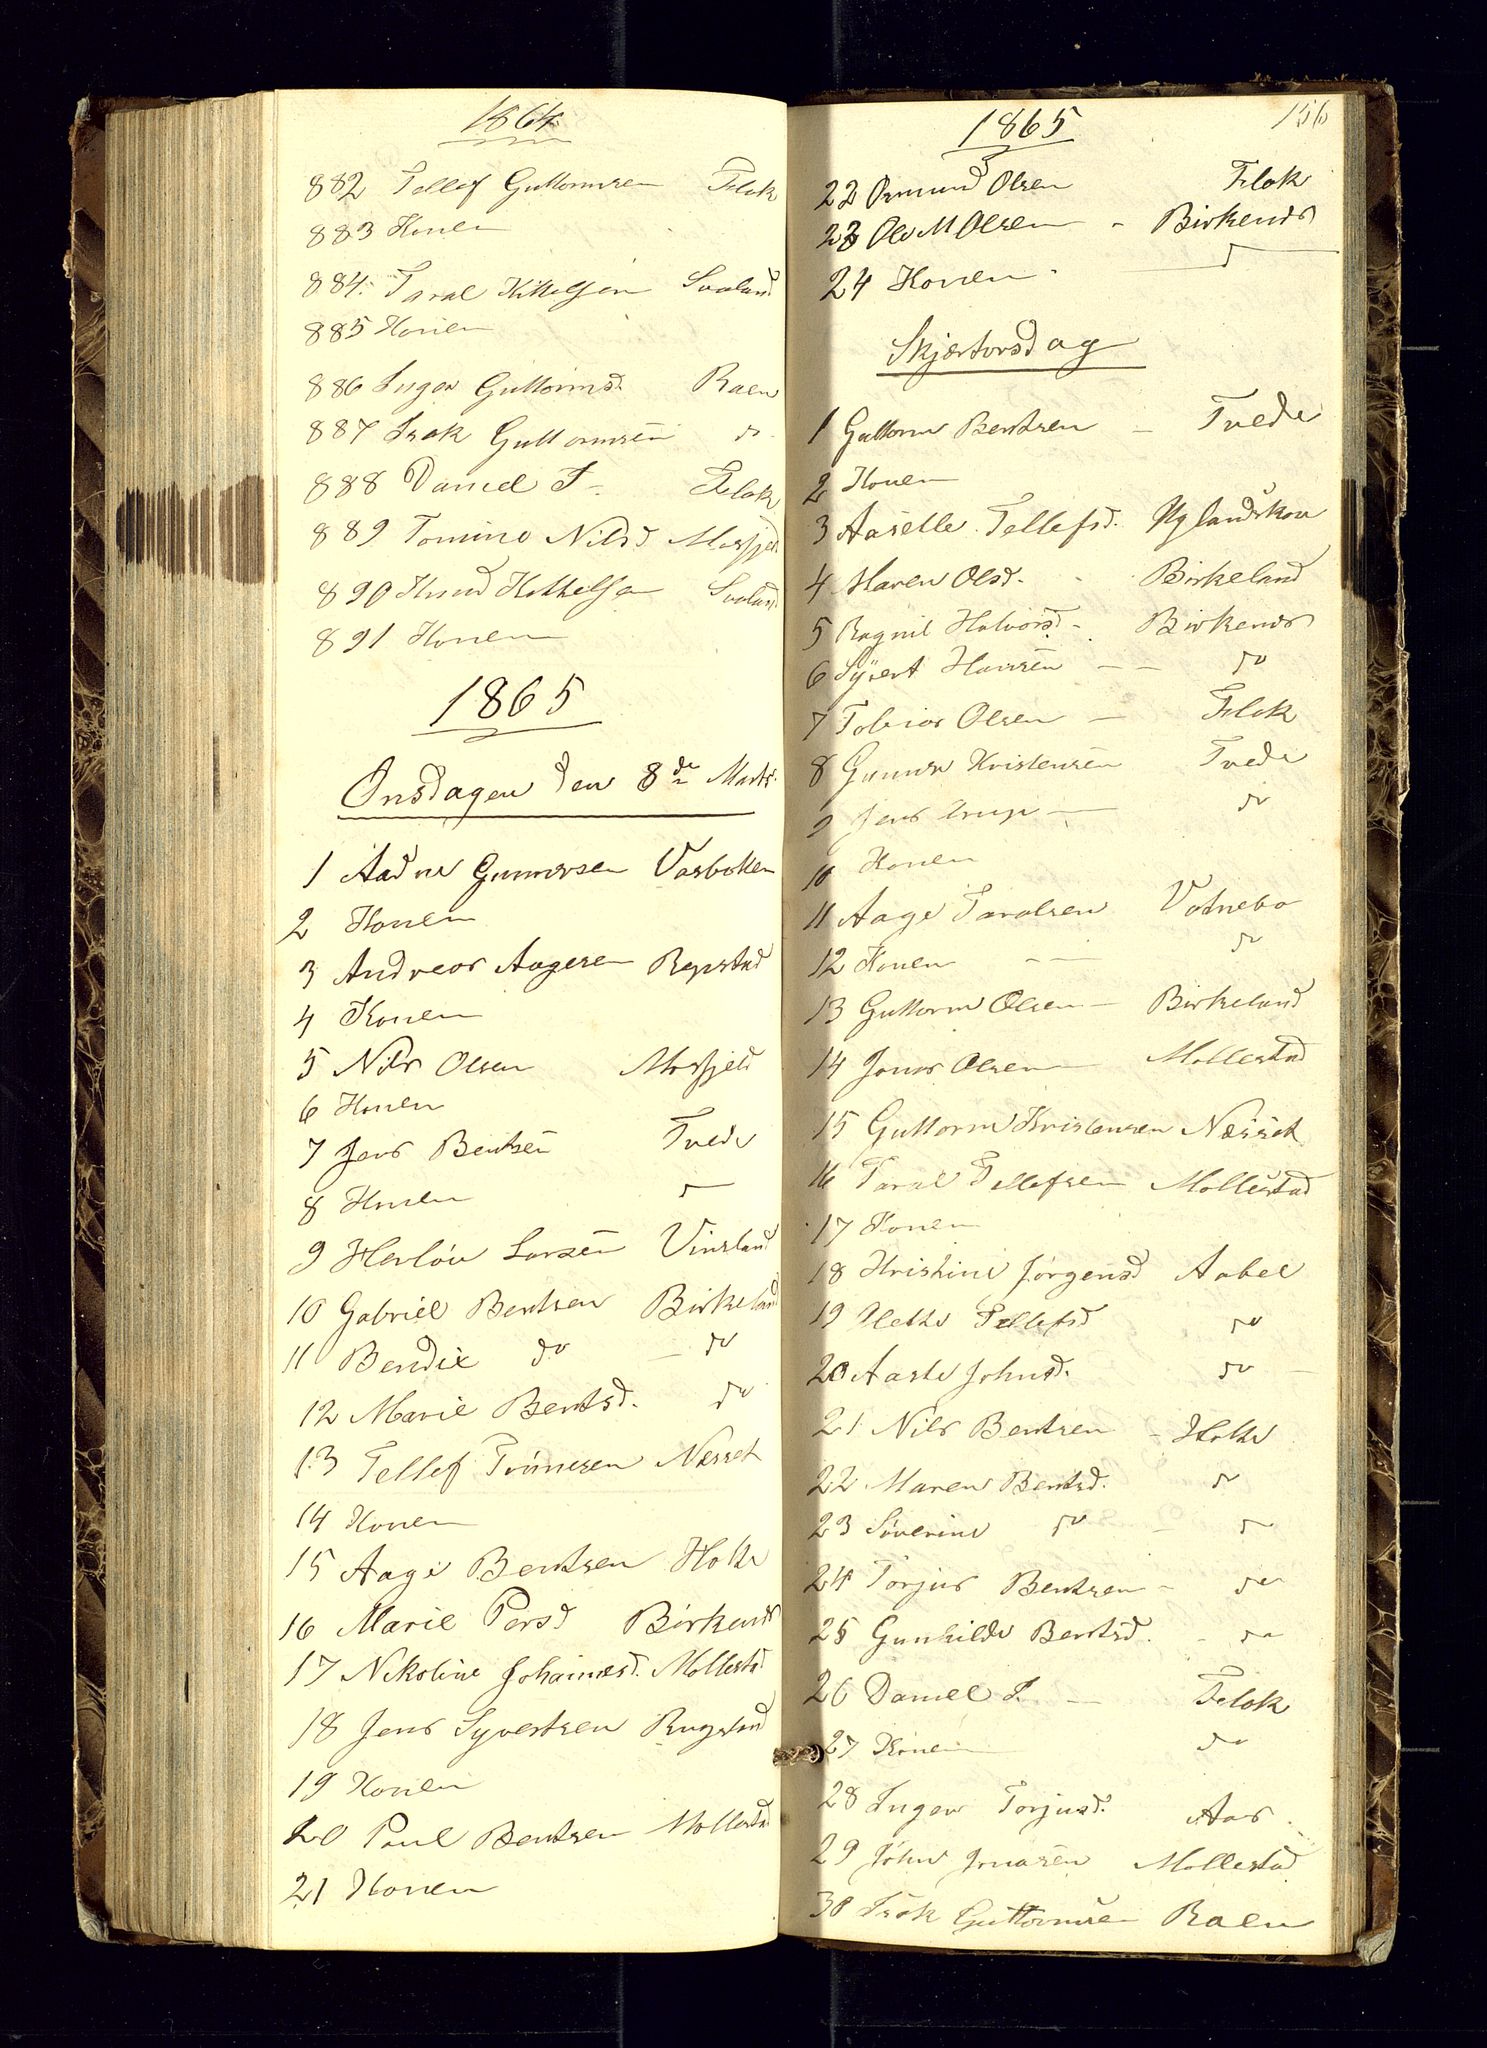 1864
882 Tellef Guttormsen Flak
883 Konen
884. Taral Kittelsen Svaland
885 Konen
886 Inger Guttormsd. Raen
887 Isak Guttormsen do
888 Daniel I. Flak
889 Tomine Nilsd Mosfjeld
890 Knud Kittelsen Svaland
891 Konen
1865
Onsdagen den 8de Marts
1 Aadne Gunnersen Vasboken
2 Konen
3 Andreas Aagesen Repstad
4 Konen
5 Nils Olsen Mosfjeld
6 Konen
7 Jens Bentsen Tvede
8 Konen do
9 Herlov Larsen Vinsland
10 Gabriel Bentsen Birkeland
11 Bendix do - do
12 Marie Bentsd. do
13 Tellef Neset
14 Konen
15 Aage Bentsen Holte
16 Marie Persd Birkenes
17 Nikoline Johannesd. Mollestad
18 Jens Syvertsen Rugsland
19 Konen
20 Paul Bentsen Mollestad
21 Konen
1865 156
22 Osmund Olsen Flak
23 Ole M Olsen - Birkenes
24 Konen. do
Skjærtorsdag
1 Guttorm Bentsen - Tvede
2 Konen
3 Aaselle Tellefsd. Uglandskon
4 Maren Olsd. - Birkeland
5 Ragnil Halvorsd - Birkenes
6 Syvert Hansen - - do
7 Tobias Olsen - Flak
8 Gunner Kristensen Tvede
9 Jens - do
10 Konen
11 Aage Taralsen Vatnebo
12 Konen - - do
13 Guttorm Olsen - Birkeland
14 Jonas Olsen - Mollestad
15 Guttorm Kristensen Næsset
16 Taral Tellefsen Mollestad
17 Konen
18 Kristine Jørgensd Aabel
19 Tellefsd do
20 Aaste Johnsd. do -
21 Nils Bentsen - Holte
22 Maren Bentsd. do
23 Severine do - do
24 Torjus Bentsen - do
25 Gunhilde Bentsd. - do
26 Daniel I. - Flak
27 Konen do
28 Inger Torjusd. Aas.
29 John Jonasen Mollestad
30 Isak Guttormsen Raen